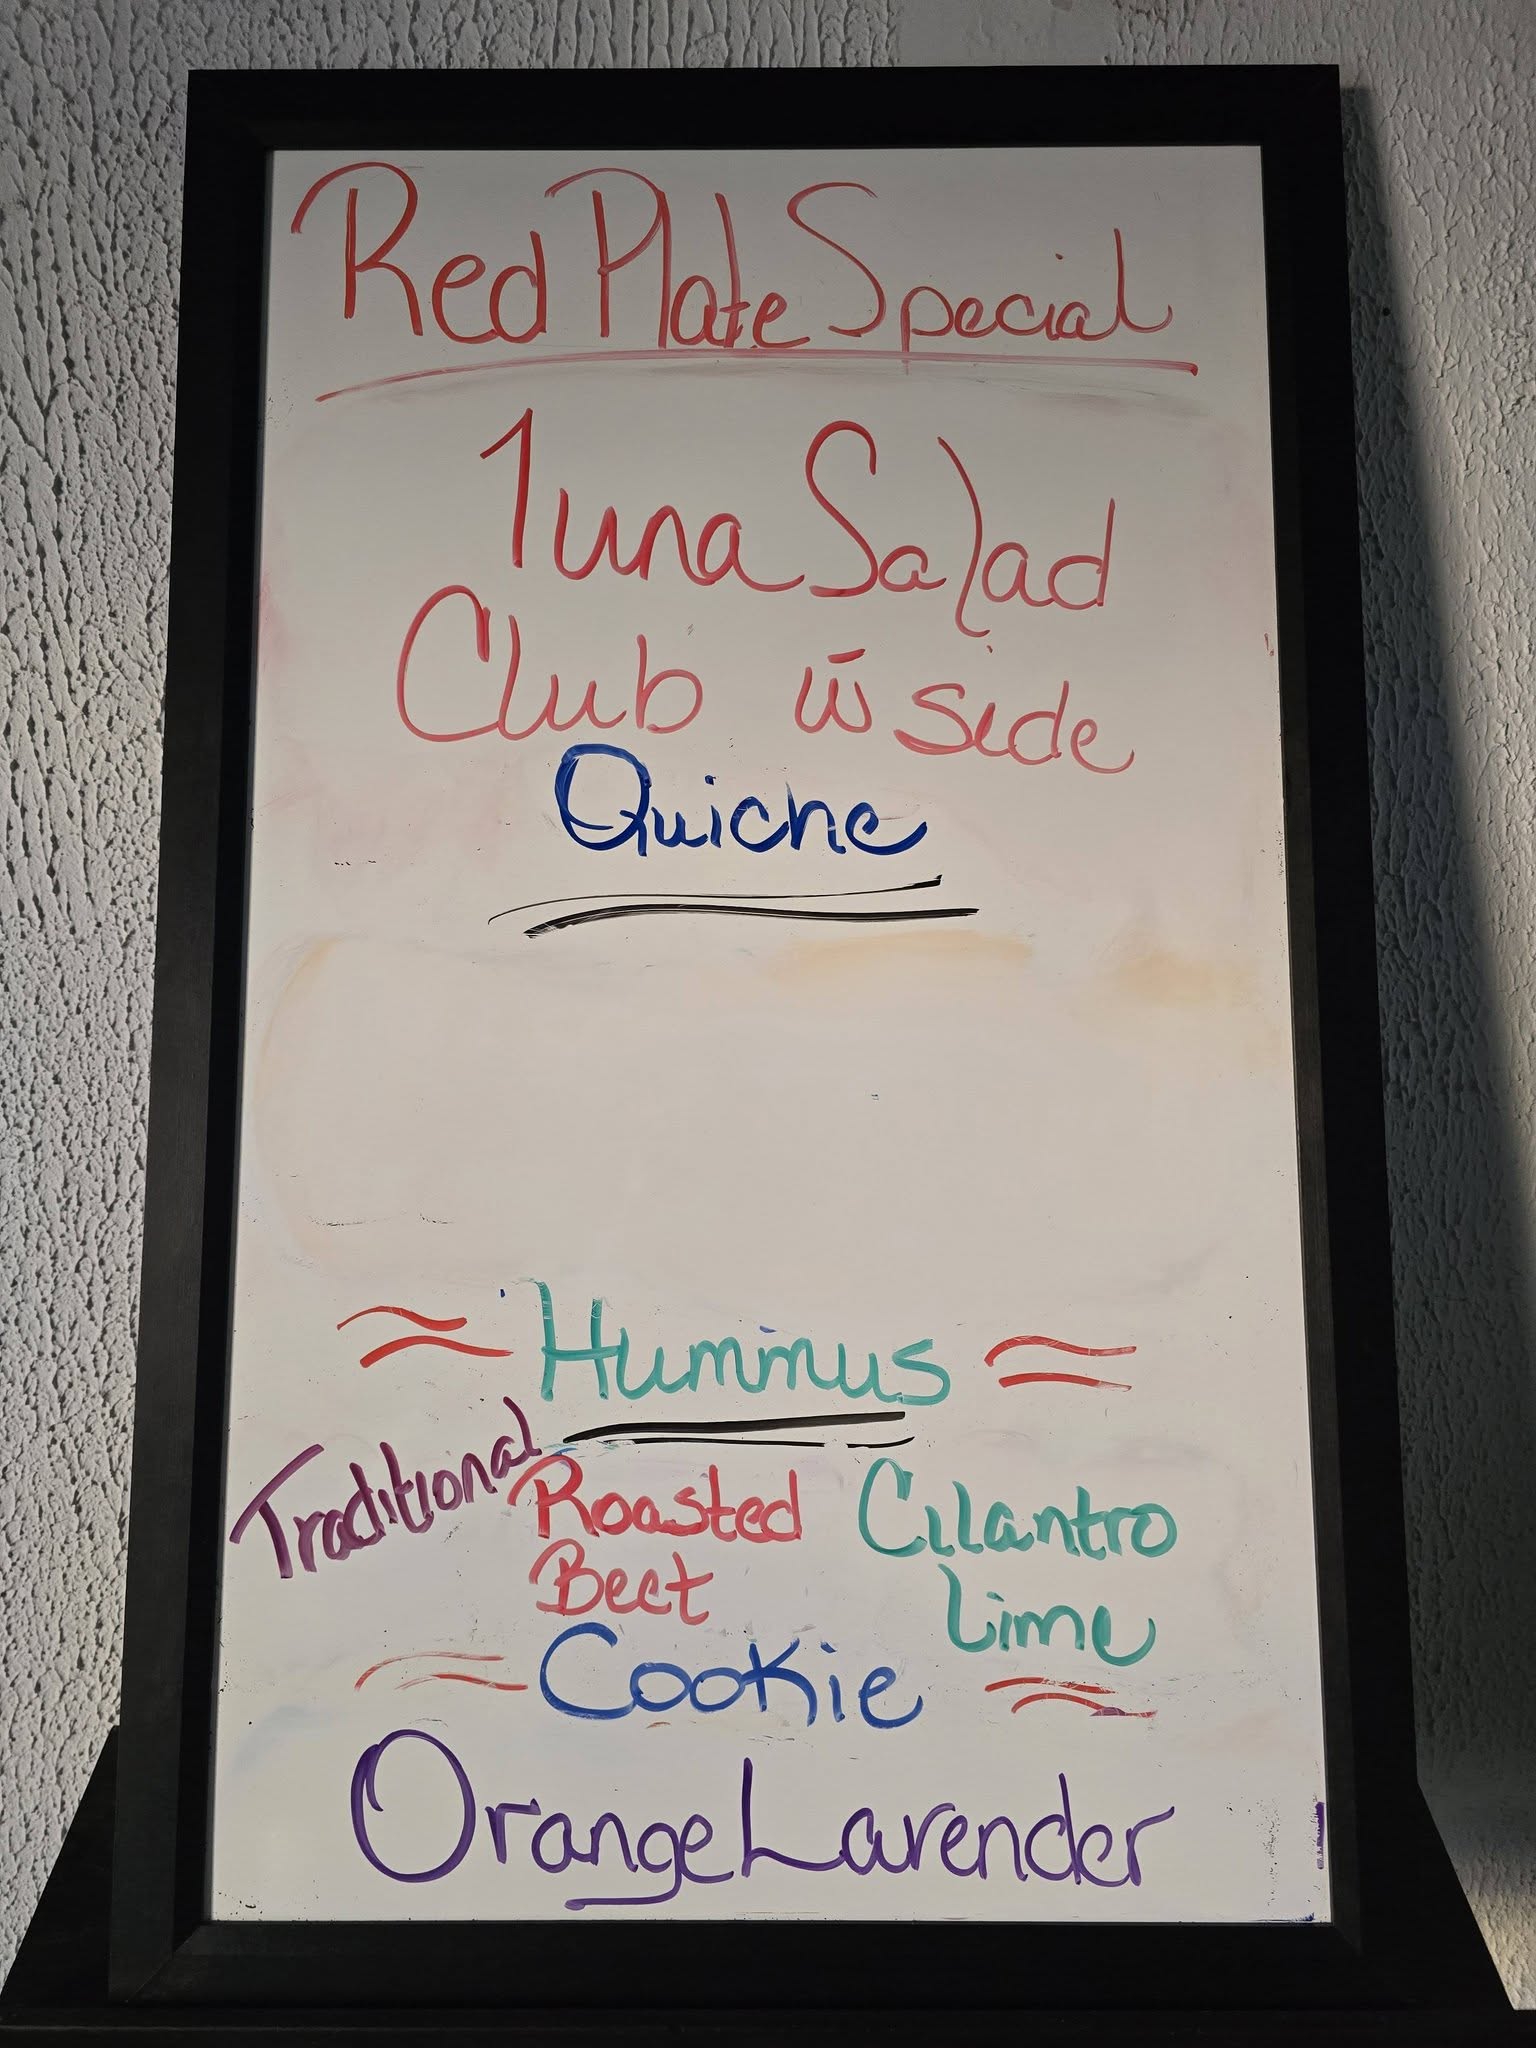 Red Plate Special
Tuna Salad
Club w̄ side
Quiche
Hummus
Traditional
Roasted
Beet
Cilantro
Lime
Cookie
Orange Lavender